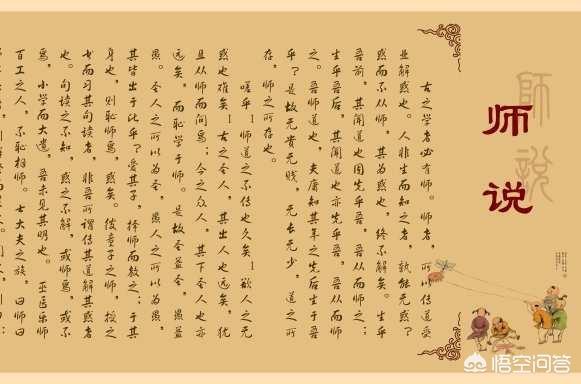 師說
师说
古之学者必有师。师者，所以传道受
业解惑也。人非生而知之者，孰能无惑？
惑而不从师，其为惑也，终不解矣。生乎
吾前，其闻道也固先乎吾，吾从而师之；
生乎吾后，其闻道也亦先乎吾，吾从而师
之。吾师道也，夫庸知其年之先后生于吾
乎？是故无贵无贱，无长无少，道之所
存，师之所存也。
嗟乎！师道之不传也久矣！欲人之无
惑也难矣！古之圣人，其出人也远矣，犹
且从师而问焉；今之众人，其下圣人也亦
远矣，而耻学于师。是故圣益圣，愚益
愚。圣人之所以为圣，愚人之所以为愚，
其皆出于此乎？爱其子，择师而教之；于其
身也，则耻师焉，惑矣。彼童子之师，授之
书而习其句读者，非吾所谓传其道解其惑者
也。句读之不知，惑之不解，或师焉，或不
焉，小学而大遗，吾未见其明也。巫医乐师
百工之人，不耻相师。士大夫之族，曰师曰
悟空问答